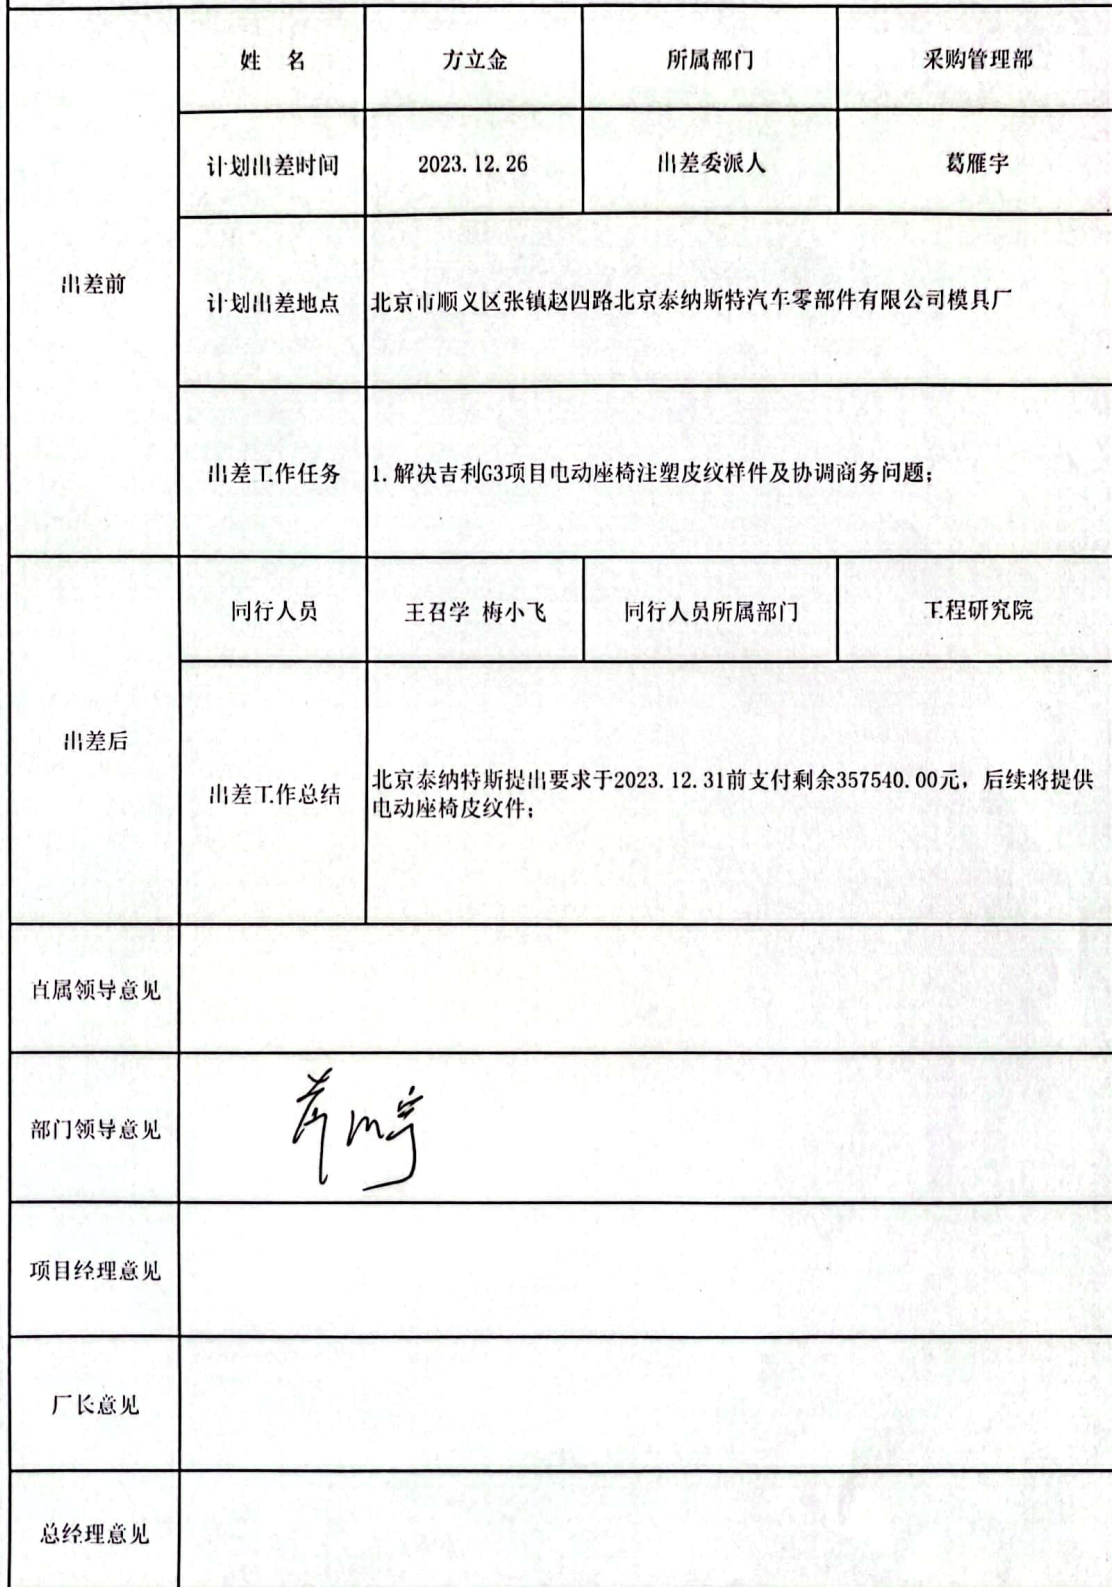 姓 名 方立金 所属部门 采购管理部
计划出差时间 2023.12.26 出差委派人 葛雁宇
出差前
计划出差地点 北京市顺义区张镇赵四路北京泰纳斯特汽车零部件有限公司模具厂
出差工作任务 1.解决吉利G3项目电动座椅注塑皮纹样件及协调商务问题;
同行人员 王召学 梅小飞 同行人员所属部门 工程研究院
出差后
出差工作总结 北京泰纳特斯提出要求于2023.12.31前支付剩余357540.00元，后续将提供
电动座椅皮纹件;
直属领导意见
部门领导意见
项目经理意见
厂长意见
总经理意见